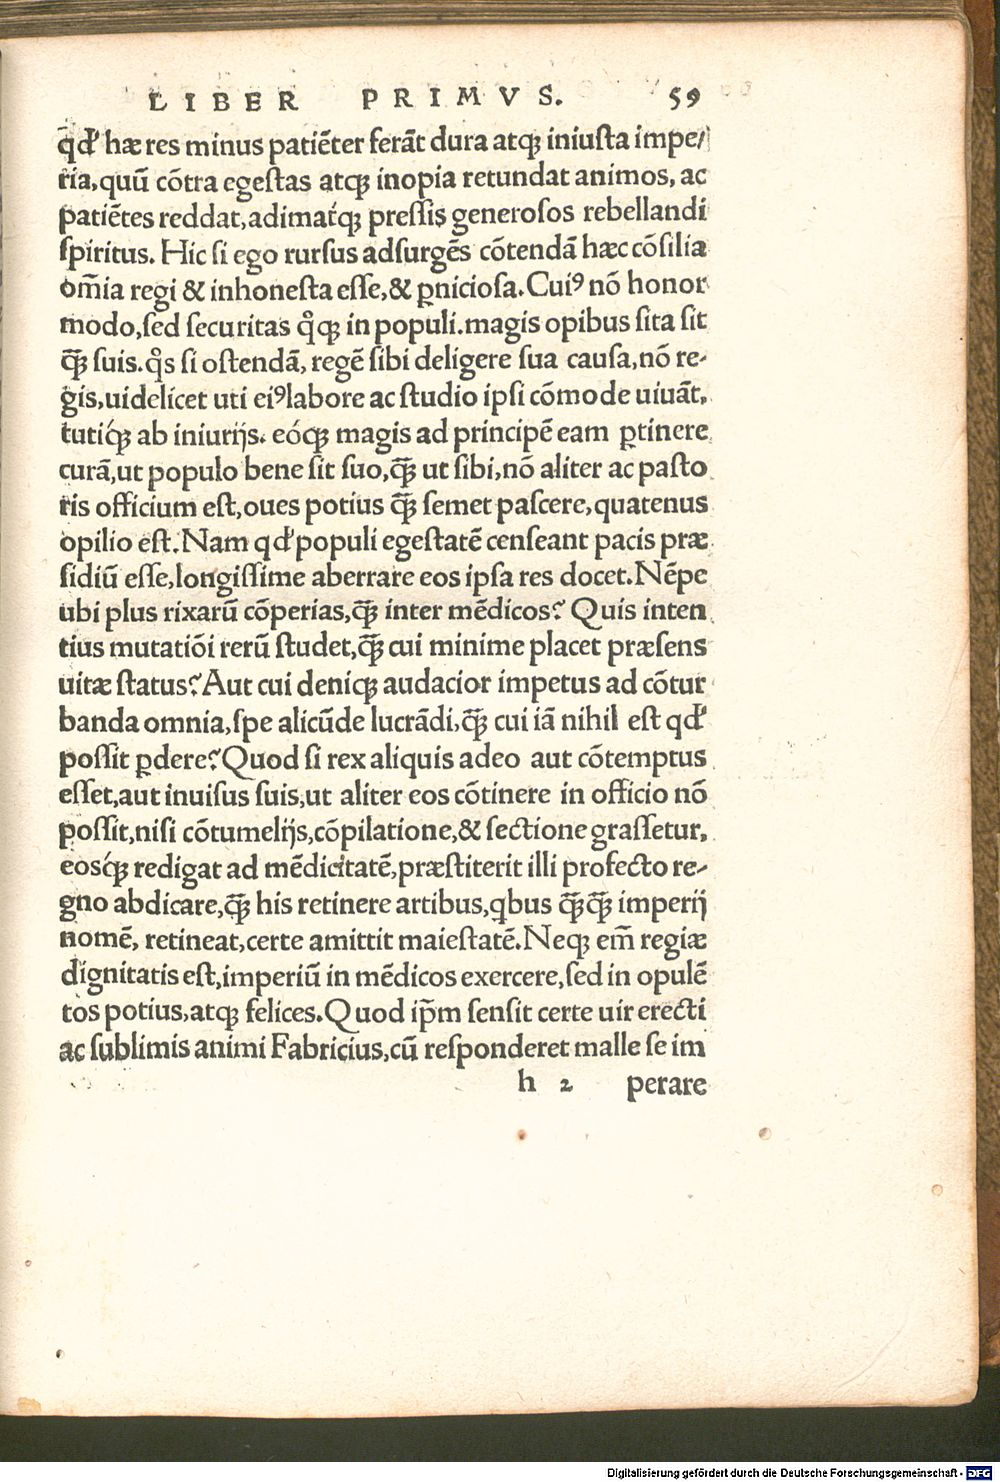 LIBER PRIMVS. 59
q̄d' hæ res minus patiēter ferāt dura atq; iniusta impe/
ria, quū cōtra egestas atq; inopia retundat animos, ac
patiētes reddat, adimat́q; pressis generosos rebellandi
spiritus. Hic si ego rursus adsurgēs cōtendā hæc cōsilia
om̄ia regi & inhonesta esse, & ꝑniciosa. Cuiꝰ nō honor
modo, sed securitas qͥq; in populi. magis opibus sita sit
q̄ꝫ suis. qͥs si ostendā, regē sibi deligere sua causa, nō re-
gis, uidelicet uti eiꝰ labore ac studio ipsi cōmode uiuāt,
tutiq́; ab iniurijs. eóq; magis ad principē eam ꝑtinere
curā, ut populo bene sit suo, q̄ꝫ ut sibi, nō aliter ac pasto
ris officium est, oues potius q̄ꝫ semet pascere, quatenus
opilio est. Nam qd' populi egestatē censeant pacis præ
sidiū esse, longissime aberrare eos ipsa res docet. Nēpe
ubi plus rixarū cōperias, q̄ꝫ inter mēdicos? Quis inten
tius mutatiōi rerū studet, q̄ꝫ cui minime placet præsens
uitæ status? Aut cui deniq; audacior impetus ad cōtur
banda omnia, spe alicūde lucrādi, q̄ꝫ cui iā nihil est qd'
possit ꝑdere? Quod si rex aliquis adeo aut cōtemptus
esset, aut inuisus suis, ut aliter eos cōtinere in officio nō
possit, nisi cōtumelijs, cōpilatione, & sectione grassetur,
eosq́; redigat ad mēdicitatē, præstiterit illi profecto re-
gno abdicare, q̄ꝫ his retinere artibus, qbus q̄ꝫq̄ꝫ imperij
nomē, retineat, certe amittit maiestatē. Neq; em̄ regiæ
dignitatis est, imperiū in mēdicos exercere, sed in opulē
tos potius, atq; felices. Quod ip̄m sensit certe uir erecti
ac sublimis animi Fabricius, cū responderet malle se im
h 2 perare
Digitalisierung gefördert durch die Deutsche Forschungsgemeinschaft - DFG